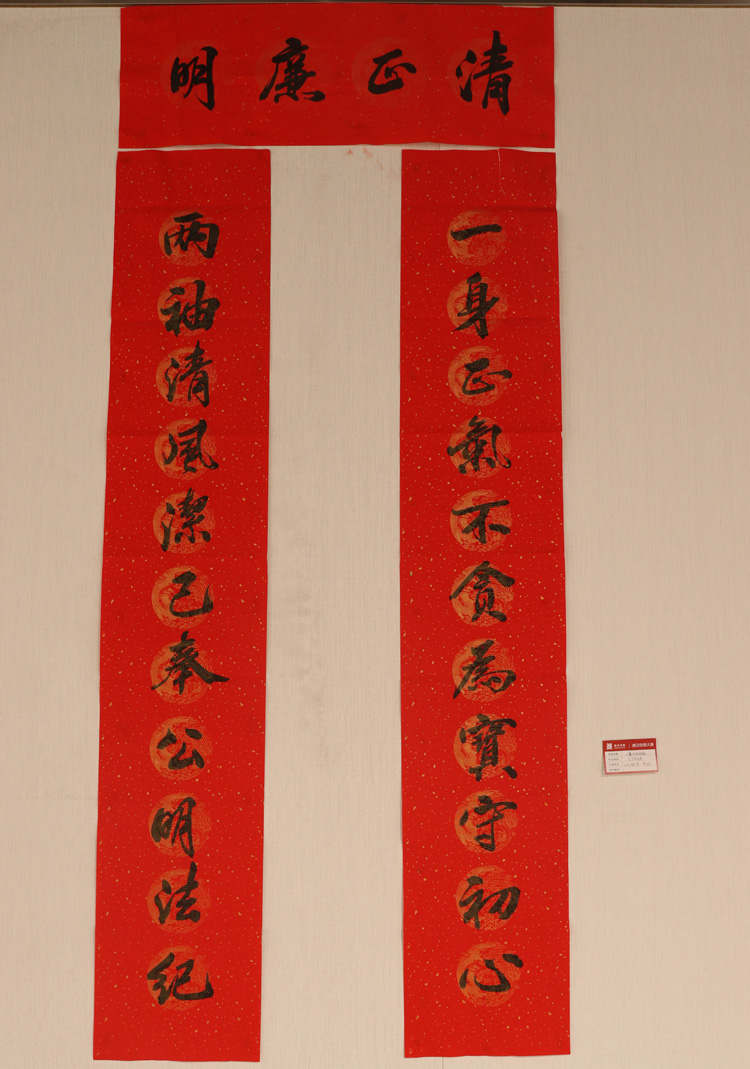 清正廉明
一身正氣不貪為寳守初心
两袖清風潔己奉公明法紀